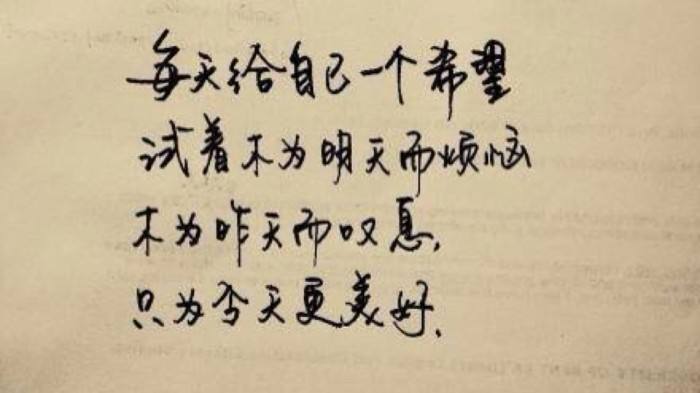 每天给自己一个希望
试着不为明天而烦恼
不为昨天而叹息,
只为今天更美好.